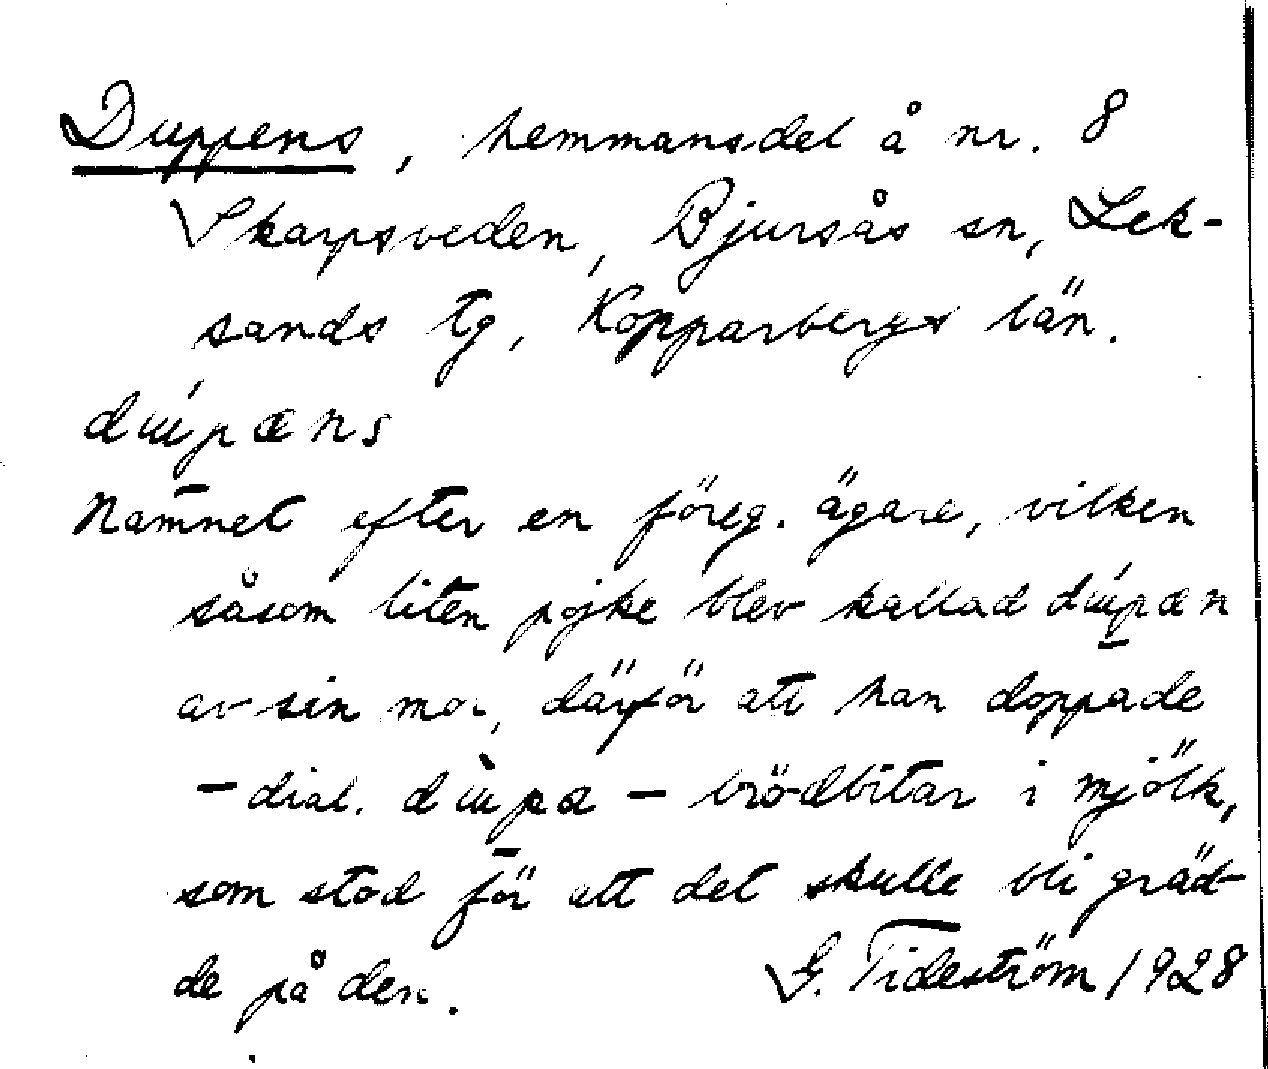 Duppens, hemmansdel å nr. 8
Skarpsveden, Bjursås sn, Lek-
sands tg, Kopparbergs län.
Namnet efter en föreg. ägare, vilken
såsom liten pojke blev kallad
av sin mor, därför att han doppade
- dial. - brödbitar i mjölk,
som stod för att det skulle bli gräd-
de på den.
G. Tideström 1928